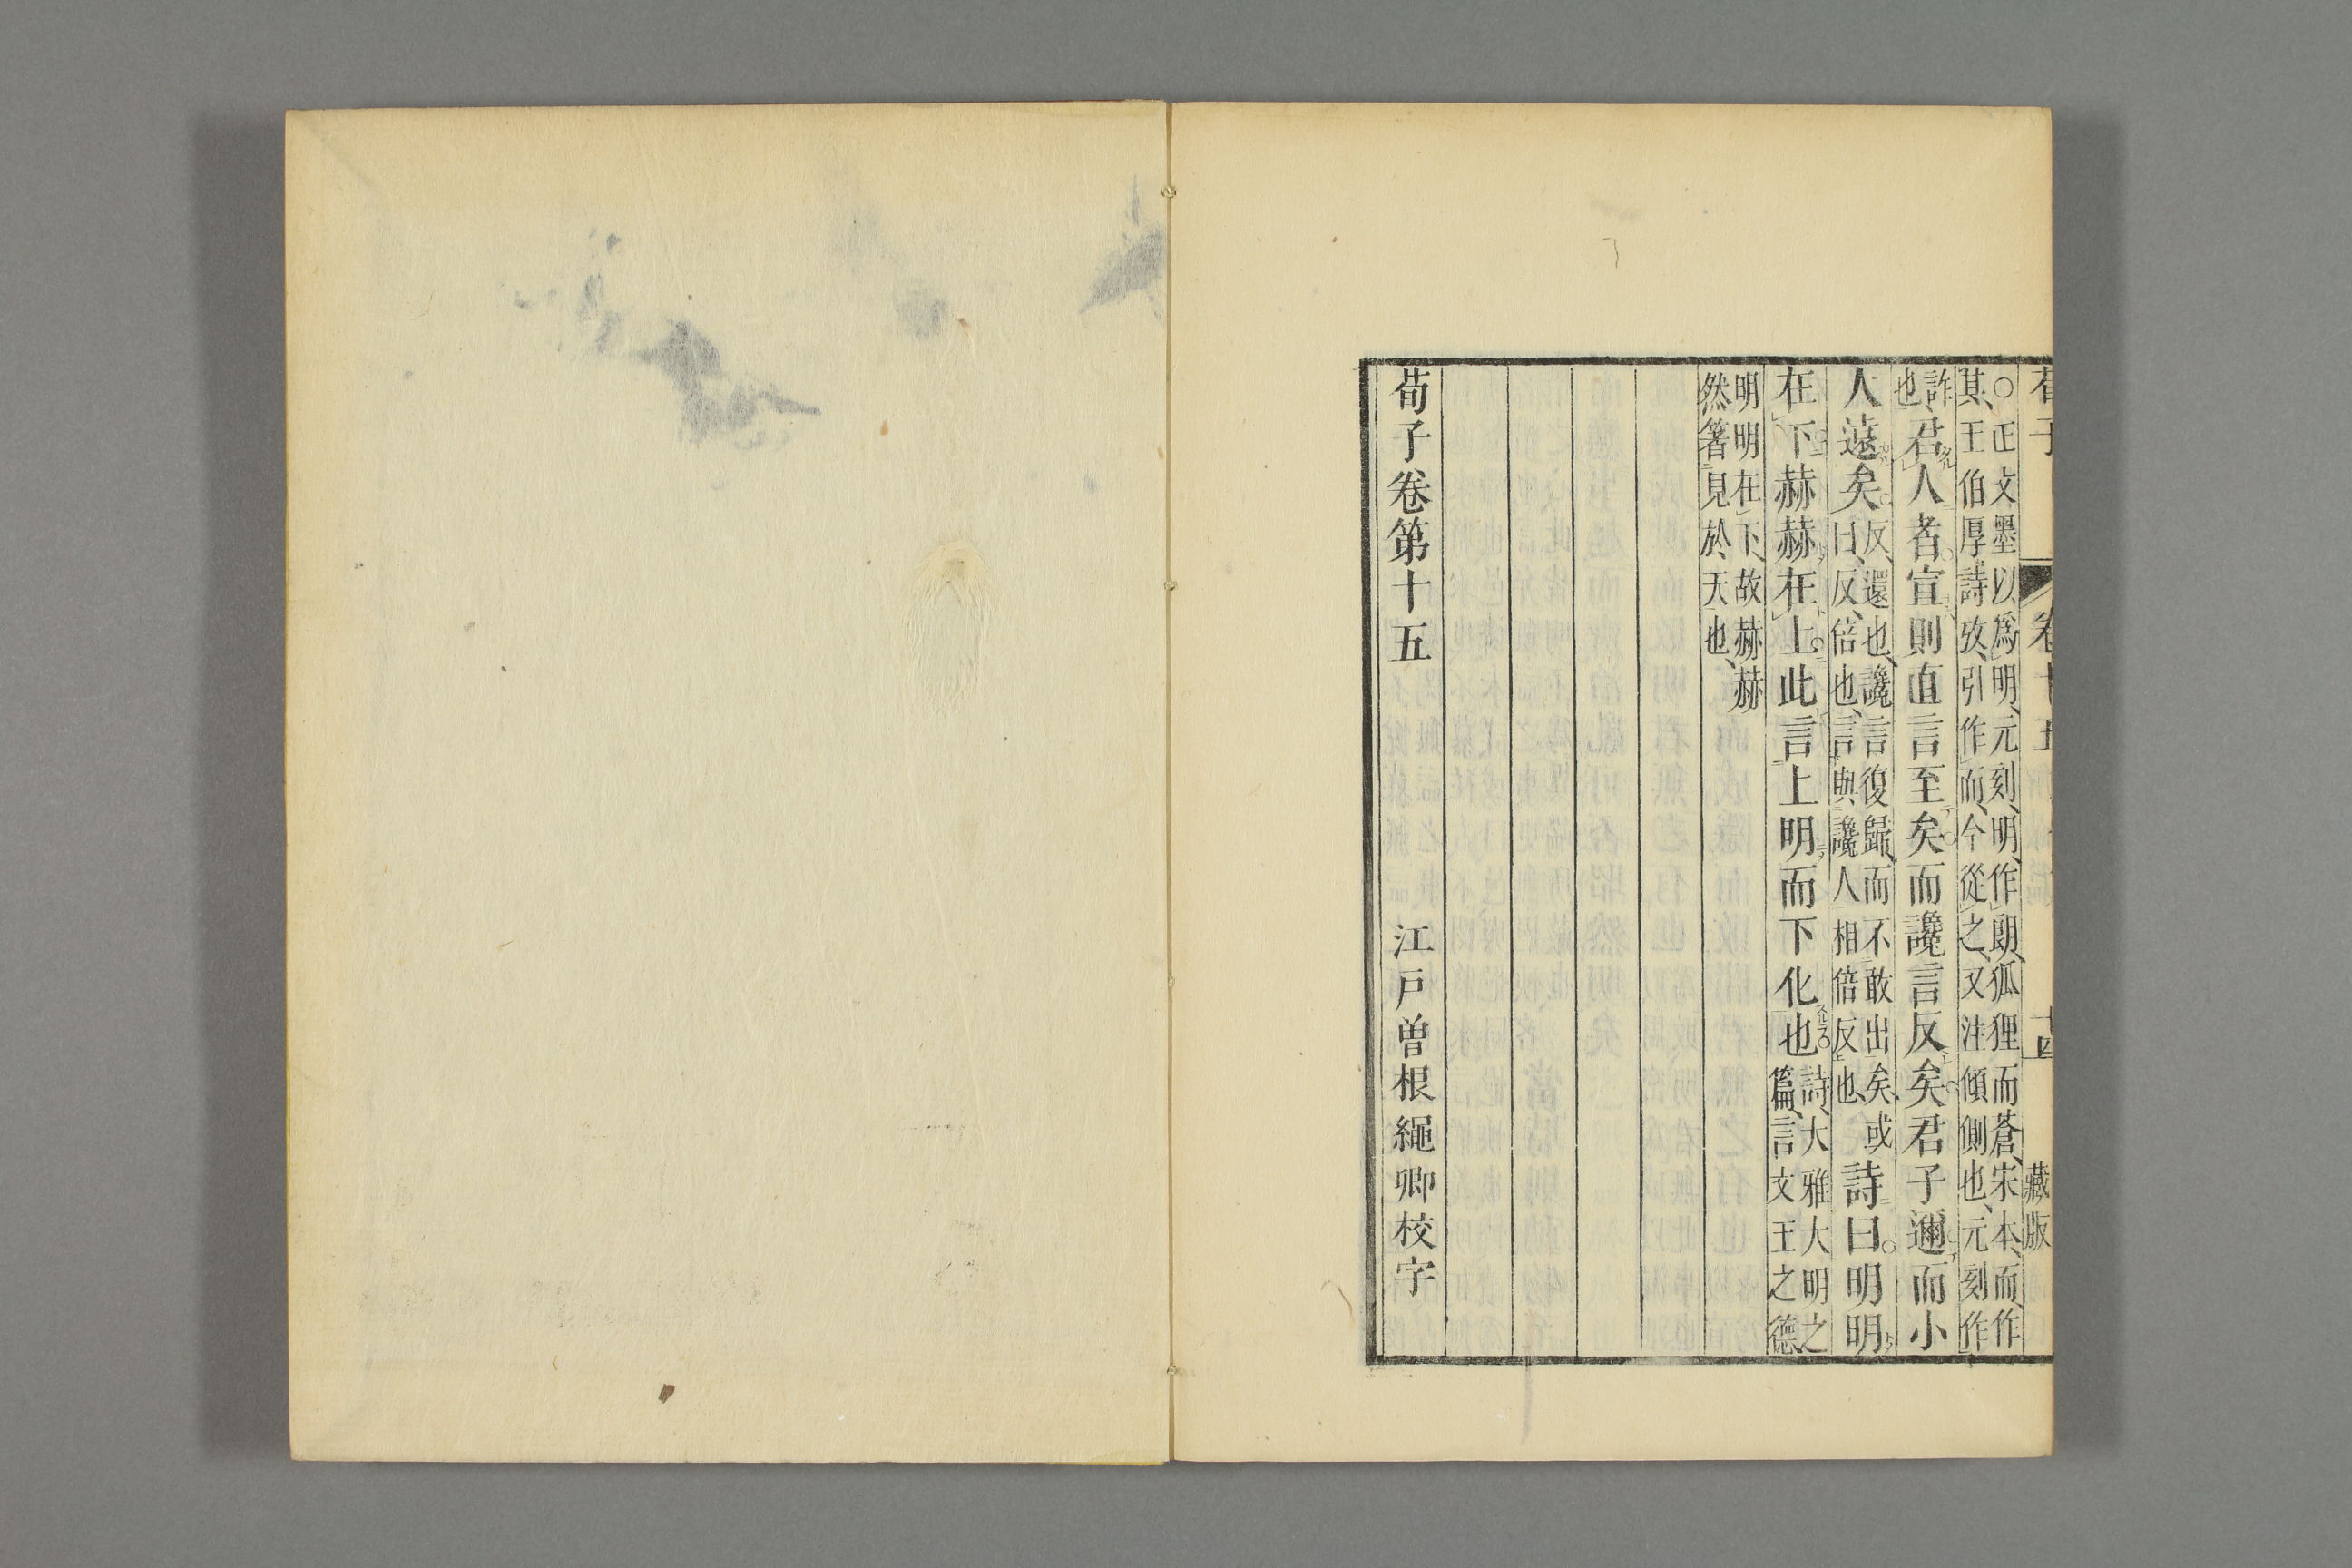 荀子 卷十五 十四 藏版
○正文墨以爲明、元刻、明、作朗、狐狸而蒼、宋本、而、作
其、王伯厚、詩攷、引作而、今從之、又注傾側也、元刻作
詐也、君人者。宣則直言至矣。而讒言反矣。君子邇而小
人遠矣。反、還也、讒言復歸、而不敢出矣、或曰、反、倍也、言與讒人相倍反也、詩曰。明明
在下。赫赫在上。此言上明而下化也。詩、大雅大明之篇、言文王之德、
明明在下、故赫赫然著見於天也、
荀子卷第十五 江戸曽根繩卿校字